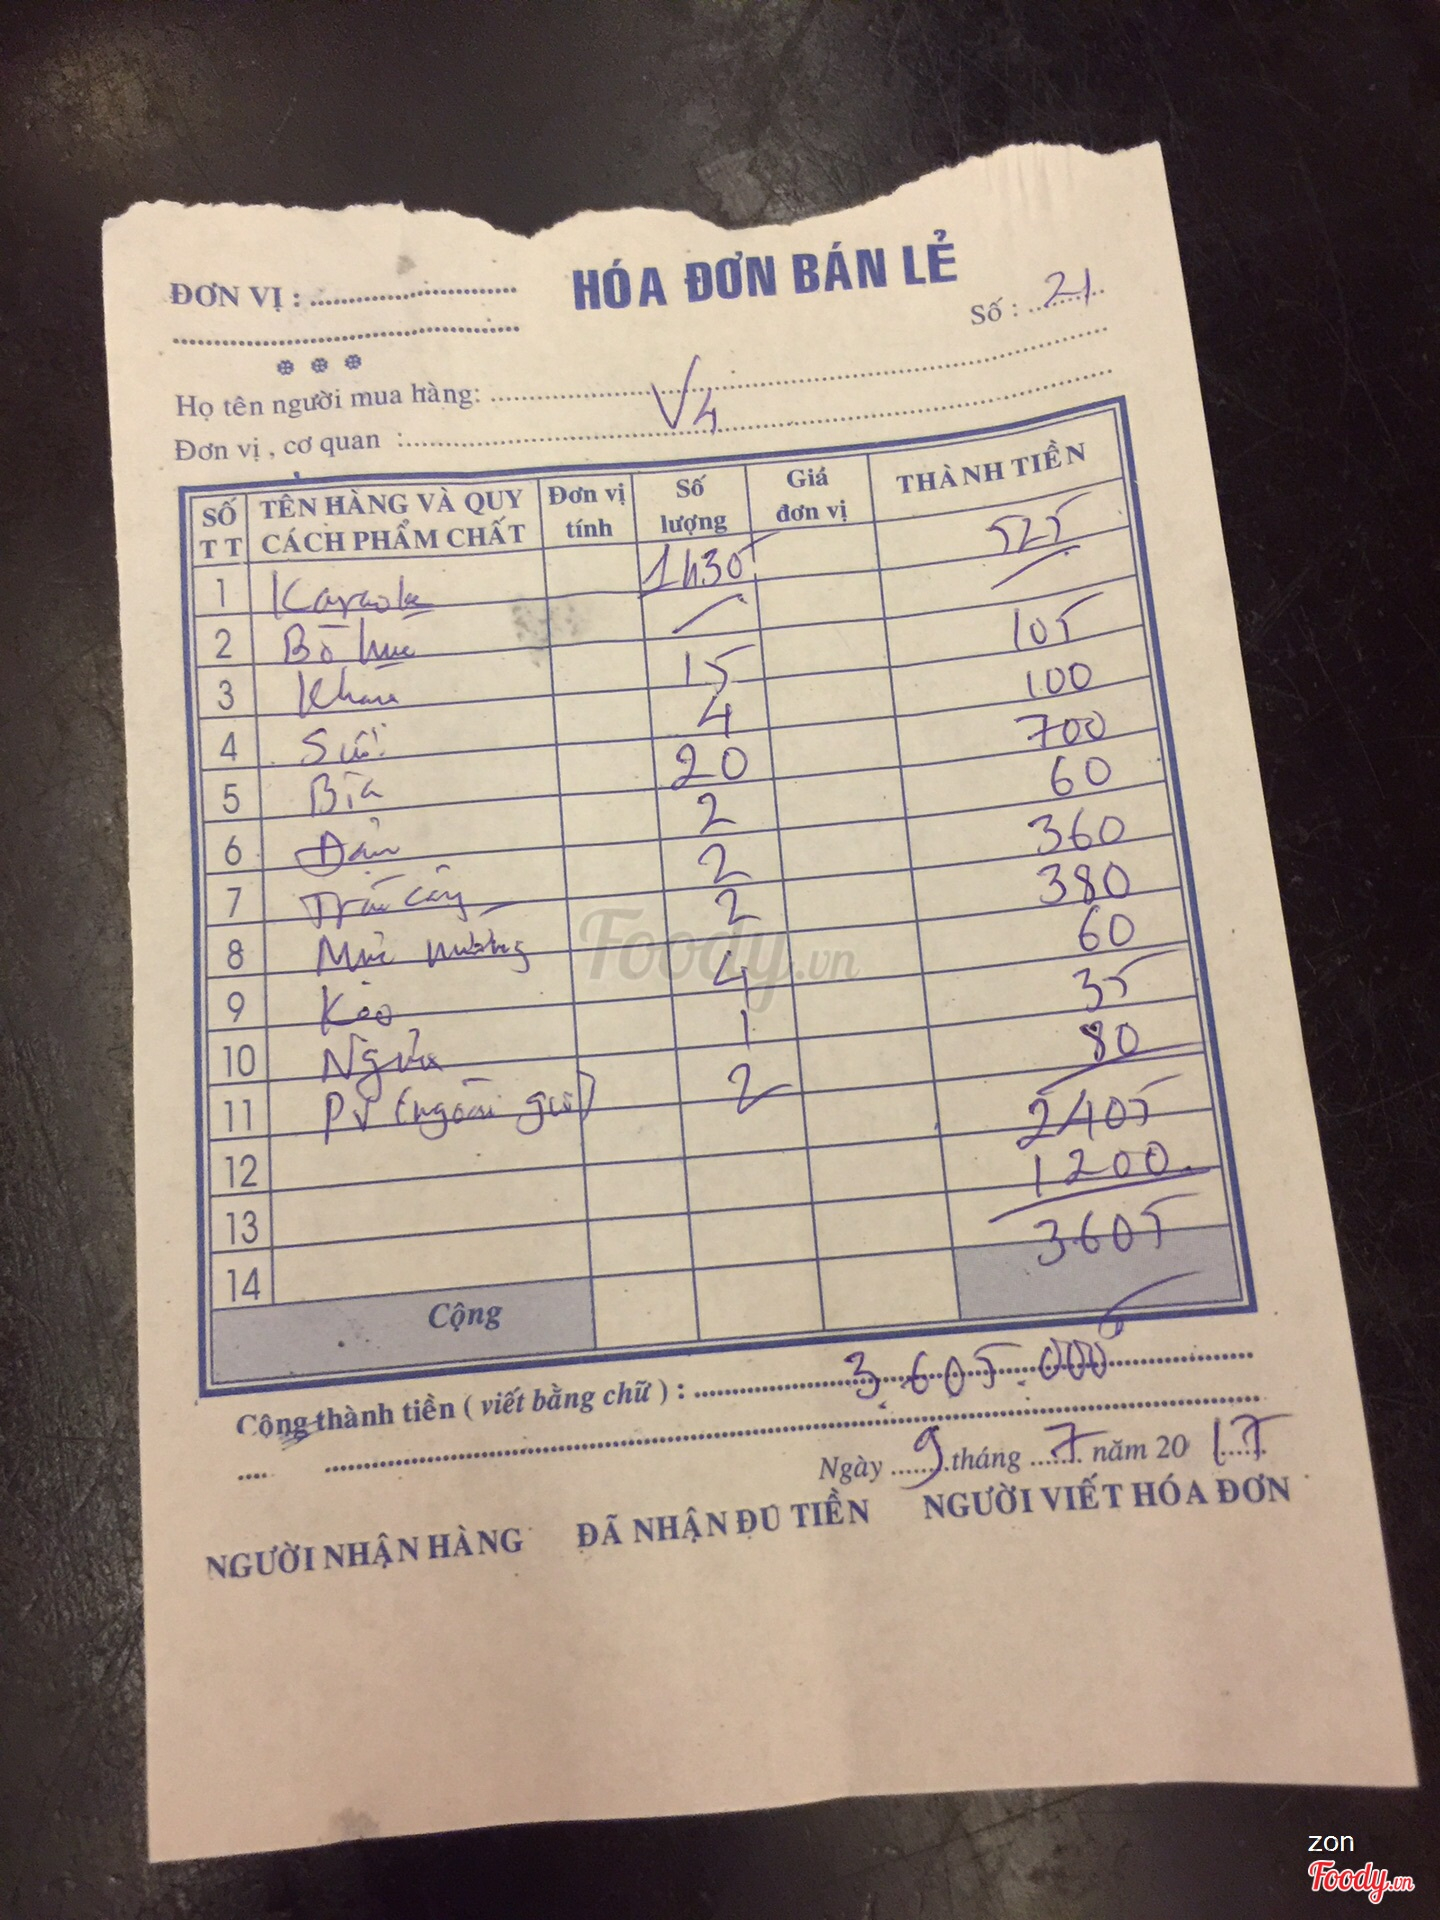 HÓA ĐƠN BÁN LẺ
ĐƠN VỊ :
Số : 21
Họ tên người mua hàng:
V4
Đơn vị , cơ quan :
SỐ TT TÊN HÀNG VÀ QUY CÁCH PHẨM CHẤT Đơn vị tính Số lượng Giá đơn vị THÀNH TIỀN
1 Karaoke 1h30 525
2 Bò húc
3 Khăn 15 105
4 Suối 4 100
5 Bia 20 700
6 2 60
7 Trái cây 2 360
8 Mực nướng 2 380
9 Kẹo 4 60
10 1 35
11 PV (ngoài giờ) 2 80
12 2405
13 1200
14 3605
Cộng
Cộng thành tiền ( viết bằng chữ ) : 3.605.000
Ngày 9 tháng 7 năm 2017
NGƯỜI NHẬN HÀNG ĐÃ NHẬN ĐỦ TIỀN NGƯỜI VIẾT HÓA ĐƠN
Foody.vn
zon
Foody.vn